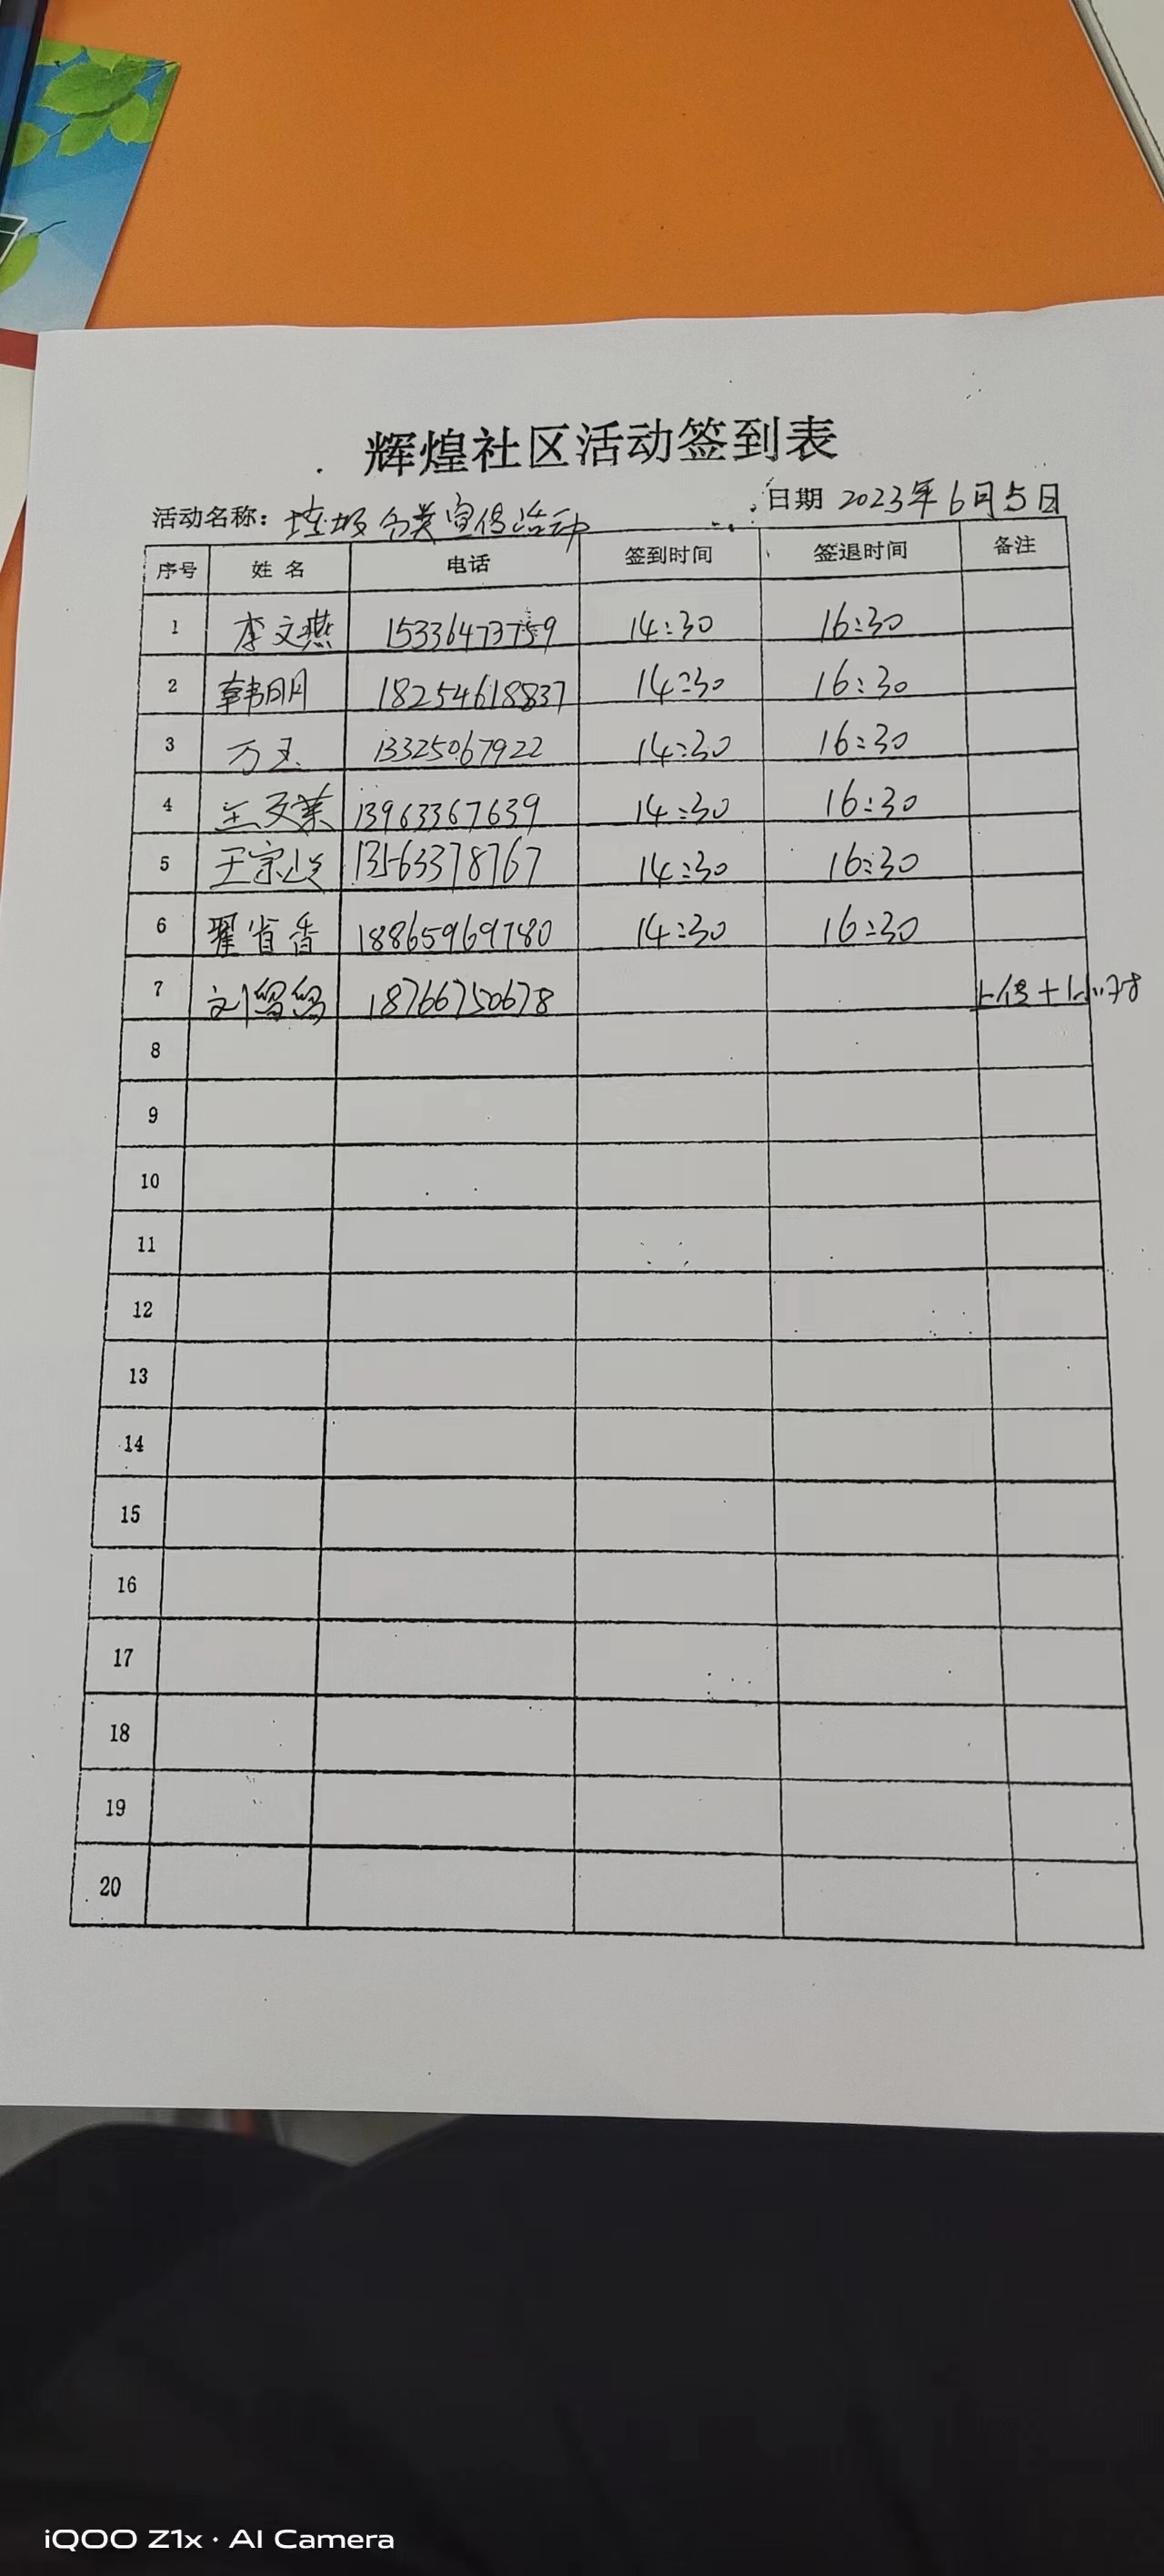 辉煌社区活动签到表
活动名称：垃圾分类宣传活动 日期 2023年6月5日
序号 姓名 电话 签到时间 签退时间 备注
1 李文燕 15336473759 14:30 16:30
2 韩明月 18254618837 14:30 16:30
3 万玉 13325067922 14:30 16:30
4 王文葉 13963367639 14:30 16:30
5 王宗 13563378767 14:30 16:30
6 翟省香 18865969780 14:30 16:30
7 刘 18766750678 上传+1小时
8
9
10
11
12
13
14
15
16
17
18
19
20
iQOO Z1x · AI Camera